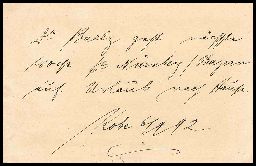 Dr Baelz geht nächste
Woche / Nürnberg / Bayern
auf Urlaub nach Hause.
Kobe 6/9 92.